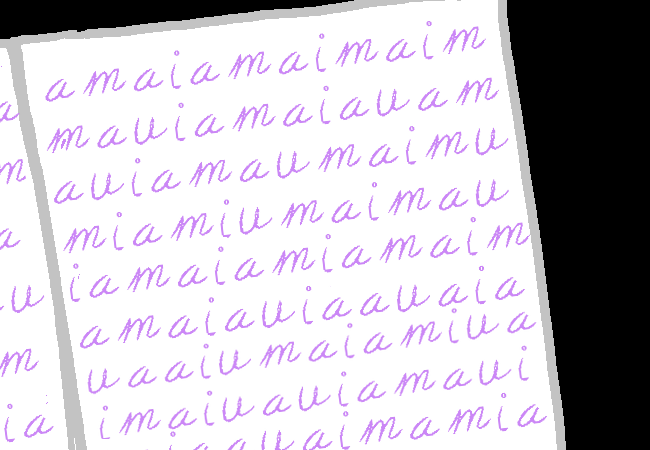 amaiamaimaim
mauiamaiauam
auiamaumaimu
miamiumaimau
iamaiamiamaim
amaiauiaauaia
uaaiumaiamiua
imaiuauiamaui
iaauaimamia
a
m
a
u
m
ia